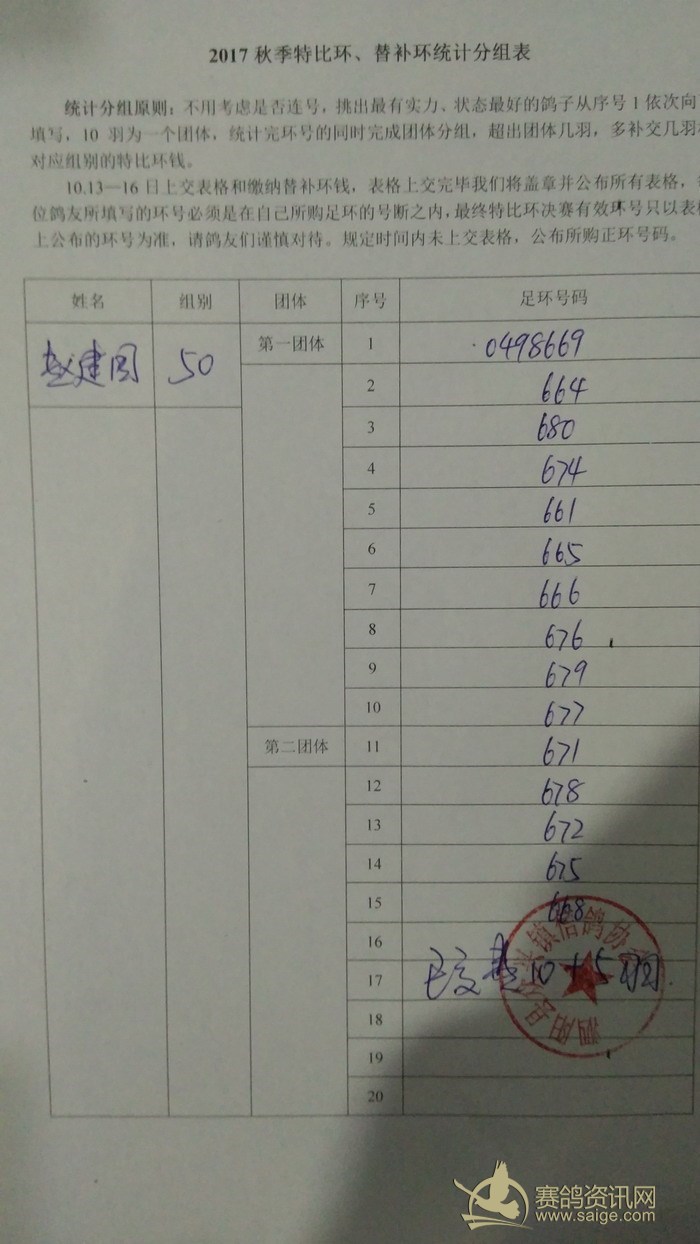 2017 秋季特比环、替补环统计分组表
统计分组原则：不用考虑是否连号，挑出最有实力、状态最好的鸽子从序号 1 依次向
填写，10 羽为一个团体，统计完环号的同时完成团体分组，超出团体几羽，多补交几羽
对应组别的特比环钱。
10.13—16 日上交表格和缴纳替补环钱，表格上交完毕我们将盖章并公布所有表格，
位鸽友所填写的环号必须是在自己所购足环的号断之内,最终特比环决赛有效环号只以表
上公布的环号为准，请鸽友们谨慎对待。规定时间内未上交表格，公布所购正环号码。
姓名 组别 团体 序号 足环号码
赵建国 50 第一团体 1 0498669
2 664
3 680
4 674
5 661
6 665
7 666
8 676
9 679
10 677
第二团体 11 671
12 678
13 672
14 675
15 668
16
17 已交 10+5
18
19
20
泗阳县 兴镇信鸽协
赛鸽资讯网
www.saige.com